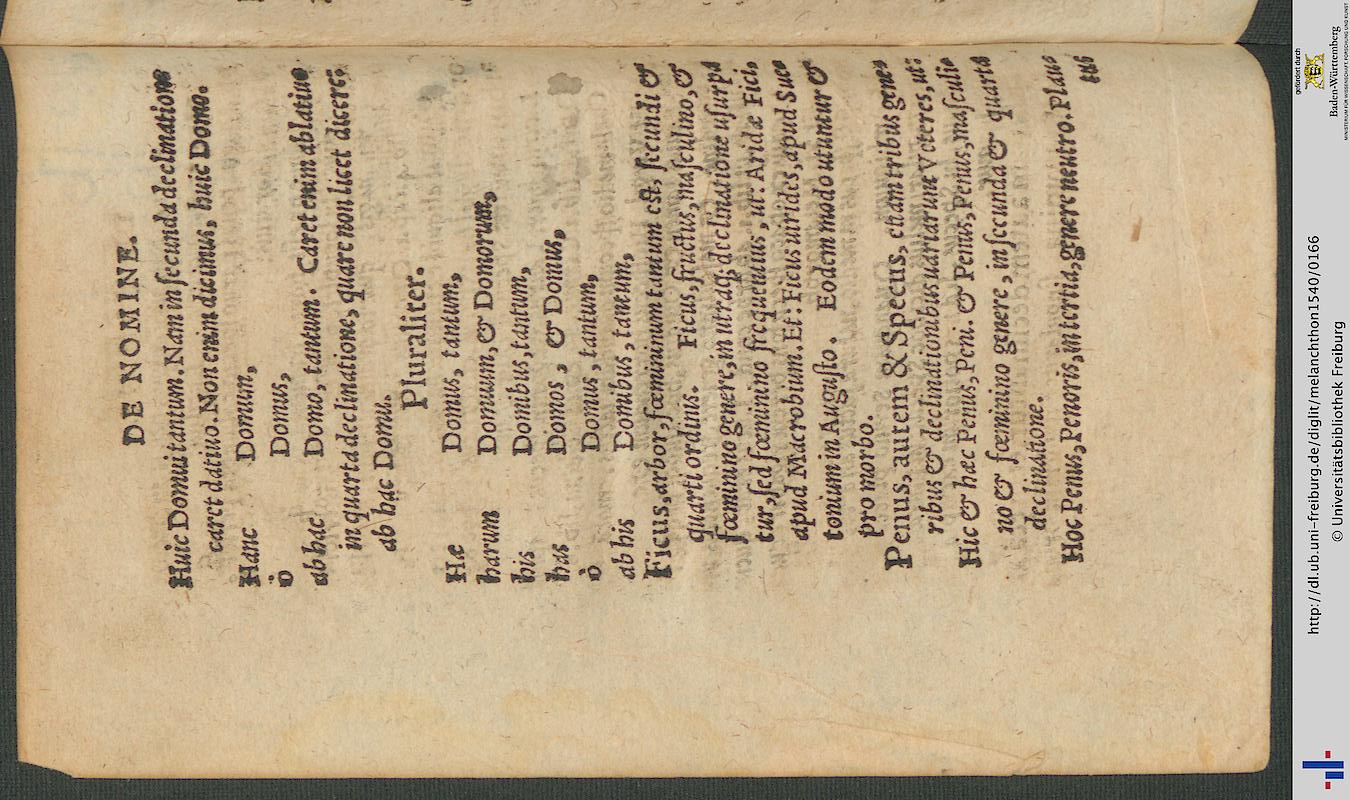 DE NOMINE.
Huic Domui tantum. Nam in ſecunda declinatione
caret datiuo. Non enim dicimus, huic Domo.
Hanc Domum,
ò Domus,
ab hac Domo, tantum. Caret enim ablatiuo
in quarta declinatione, quare non licet dicere:
ab hac Domu.
Pluraliter.
Hæ Domus, tantum,
harum Domuum, & Domorum,
his Domibus, tantum,
has Domos, & Domus,
ò Domus, tantum,
ab his Domibus, tantum,
Ficus, arbor, fœmininum tantum eſt, ſecundi &
quarti ordinis. Ficus, fructus, maſculino, &
fœminino genere, in utraq; declinatione uſurpa
tur, ſed fœminino frequentius, ut: Aridæ Fici,
apud Macrobium. Et: Ficus uirides, apud Sue
tonium in Auguſto. Eodem modo utuntur &
pro morbo.
Penus, autem & Specus, etiam tribus gene
ribus & declinationibus uariarunt Veteres, ut:
Hic & hæc Penus, Peni. & Penus, Penus, maſculi
no & fœminino genere, in ſecunda & quarta
declinatione.
Hoc Penus, Penoris, in tertia, genere neutro. Plau
tus
http://dl.ub.uni-freiburg.de/diglit/melanchthon1540/0166
© Universitätsbibliothek Freiburg
gefördert durch
Baden-Württemberg
MINISTERIUM FÜR WISSENSCHAFT, FORSCHUNG UND KUNST